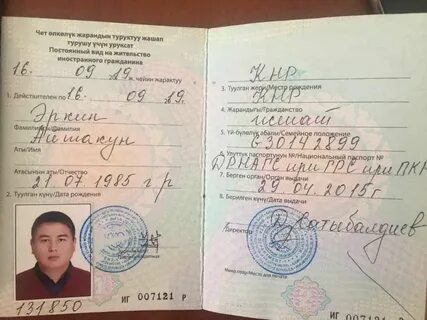 Чет өлкөлүк жарандын туруктуу жашап
турушу үчүн уруксат
Постоянный вид на жительство
иностранного гражданина
16. 09 19-г. чейин жарактуу
1. Действителен по 16. 09 19г.
Эркин
Фамилиясы/Фамилия
Аймакун
Аты/Имя
Атасынын аты/Отчество
21.07.1985 г р
2. Туулган күнү/Дата рождения
131850
ИГ 007121 Р
КНР
3. Туулган жери/Место рождения
КНР
4. Жарандыгы/Гражданство
5. Үй-бүлөлүк абалы/Семейное положение
G30142899
6. Улуттук паспортунун №/Национальный паспорт №
ДРНАГС при ГРС при ПКР
7. Берген орган/Орган выдачи
29.04.2015г
8. Берилген күнү/Дата выдачи
Директор
Мөөр орду/Место для печати
ИГ 007121 Р